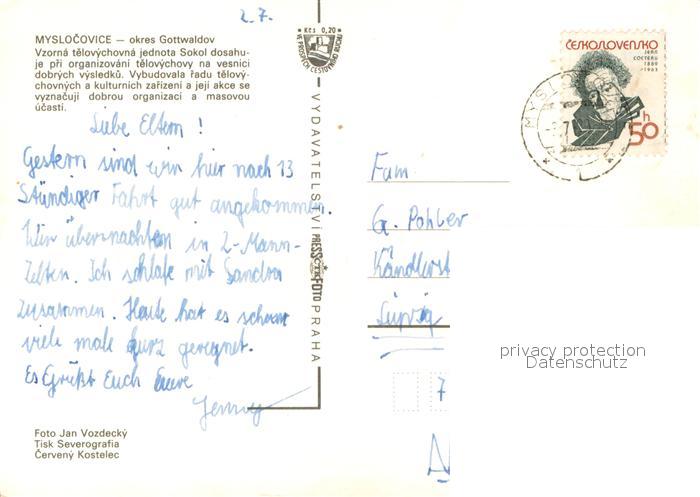 2.7.
MYSLOČOVICE — okres Gottwaldov
Vzorná tělovýchovná jednota Sokol dosahu-
je při organizování tělovýchovy na vesnici
dobrých výsledků. Vybudovala řadu tělový-
chovných a kulturních zařízení a její akce se
vyznačují dobrou organizací a masovou
účastí.
Liebe Eltern!
Gestern sind wir hier nach 13
Stündiger Fahrt gut angekommen.
Wir übernachten in 2-Mann-
Zelten. Ich schlafe mit Sandra
zusammen. Heute hat es schon
viele male kurz geregnet.
Es Grüßt Euch Eure
Jenny
Foto Jan Vozdecký
Tisk Severografia
Červený Kostelec
Kčs 0,20
VE PROSPĚCH CESTOVNÍHO RUCHU
VYDAVATELSTVÍ PRESSFOTO PRAHA
ČESKOSLOVENSKO
JEAN
COCTEAU
1889
1963
50 h
Fam
G. Pohler
Leipzig
7
privacy protection
Datenschutz